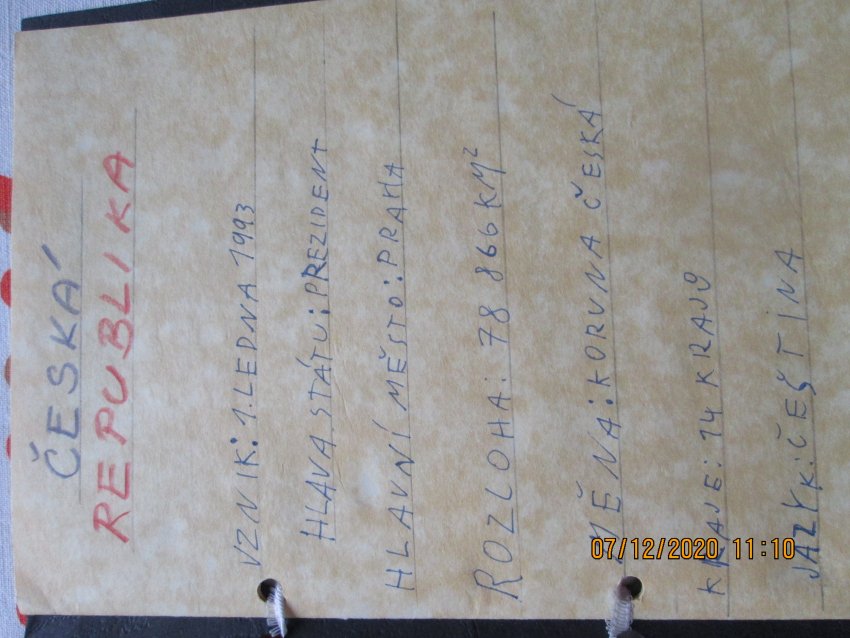 ČESKÁ
REPUBLIKA
VZNIK: 1. LEDNA 1993
HLAVA STÁTU: PREZIDENT
HLAVNÍ MĚSTO: PRAHA
ROZLOHA: 78 866 KM²
MĚNA: KORUNA ČESKÁ
KRAJE: 14 KRAJŮ
JAZYK: ČEŠTINA
07/12/2020 11:10